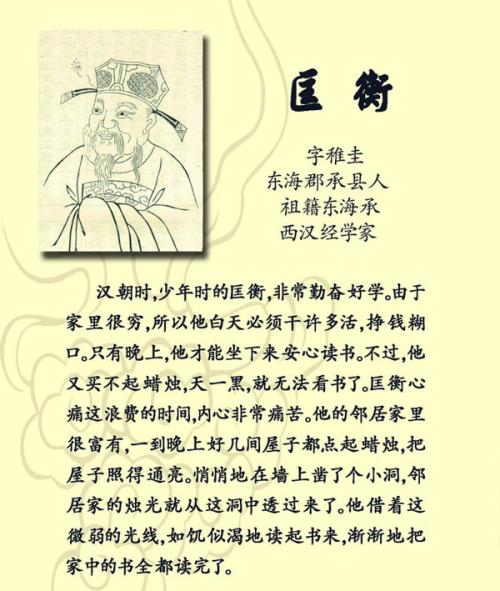 匡 衡
字稚圭
东海郡承县人
祖籍东海承
西汉经学家
汉朝时,少年时的匡衡,非常勤奋好学。由于
家里很穷,所以他白天必须干许多活,挣钱糊
口。只有晚上,他才能坐下来安心读书。不过,他
又买不起蜡烛,天一黑,就无法看书了。匡衡心
痛这浪费的时间,内心非常痛苦。他的邻居家里
很富有,一到晚上好几间屋子都点起蜡烛,把
屋子照得通亮。悄悄地在墙上凿了个小洞,邻
居家的烛光就从这洞中透过来了。他借着这
微弱的光线,如饥似渴地读起书来,渐渐地把
家中的书全都读完了。